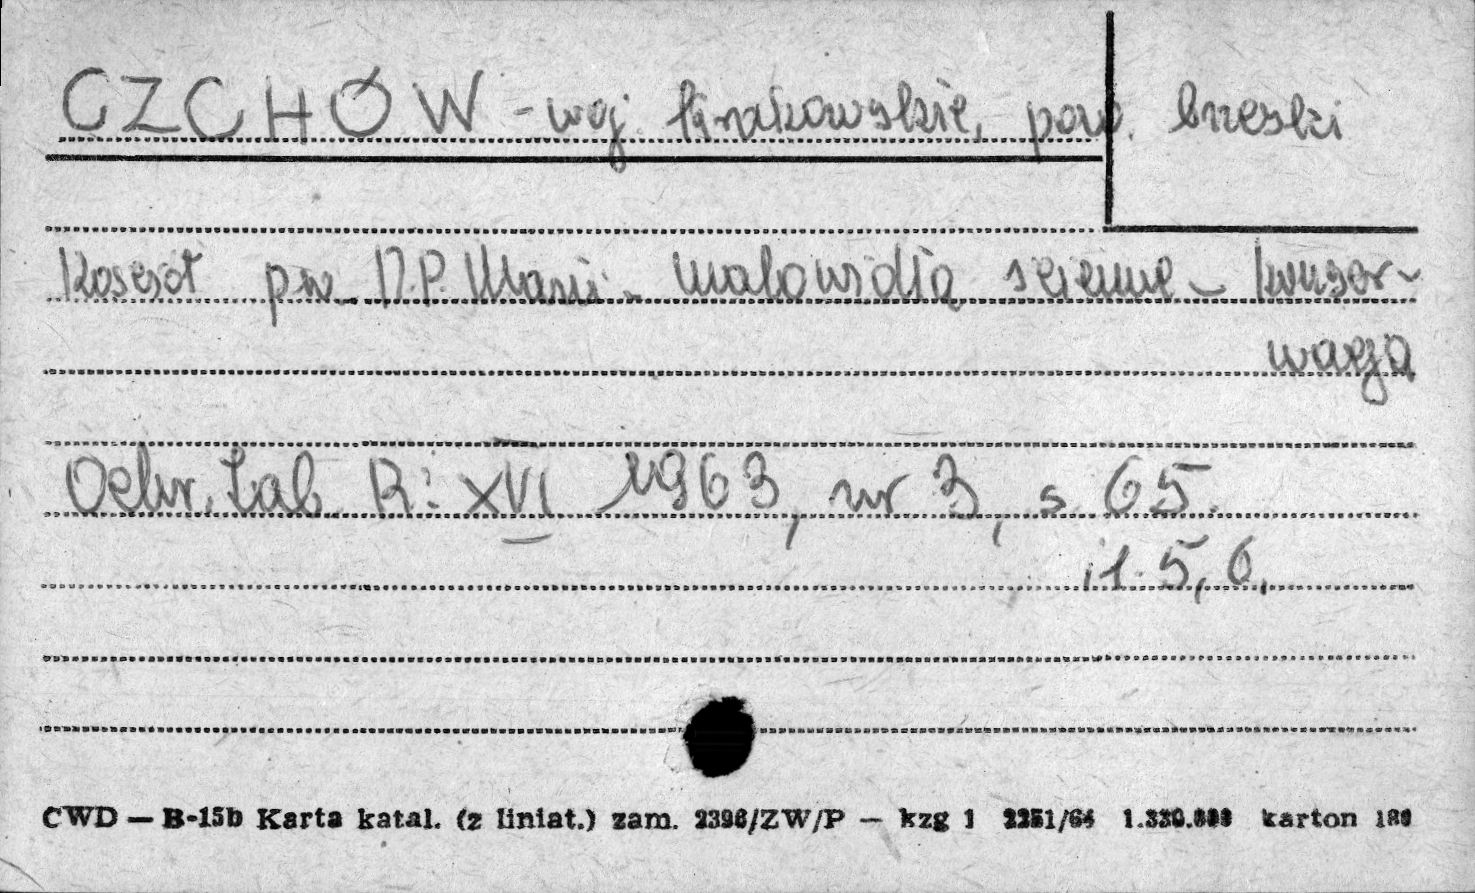 CZCHÓW - woj. krakowskie, pow. brzeski
Kościół pw. N.P. Marii - malowidła ścienne - konser-
wacja
Ochr. Zab. R: XVI 1963, nr 3, s. 65.
il. 5, 6,
CWD — B-15b Karta katal. (z liniat.) zam. 2396/ZW/P — kzg 1 2251/64 karton